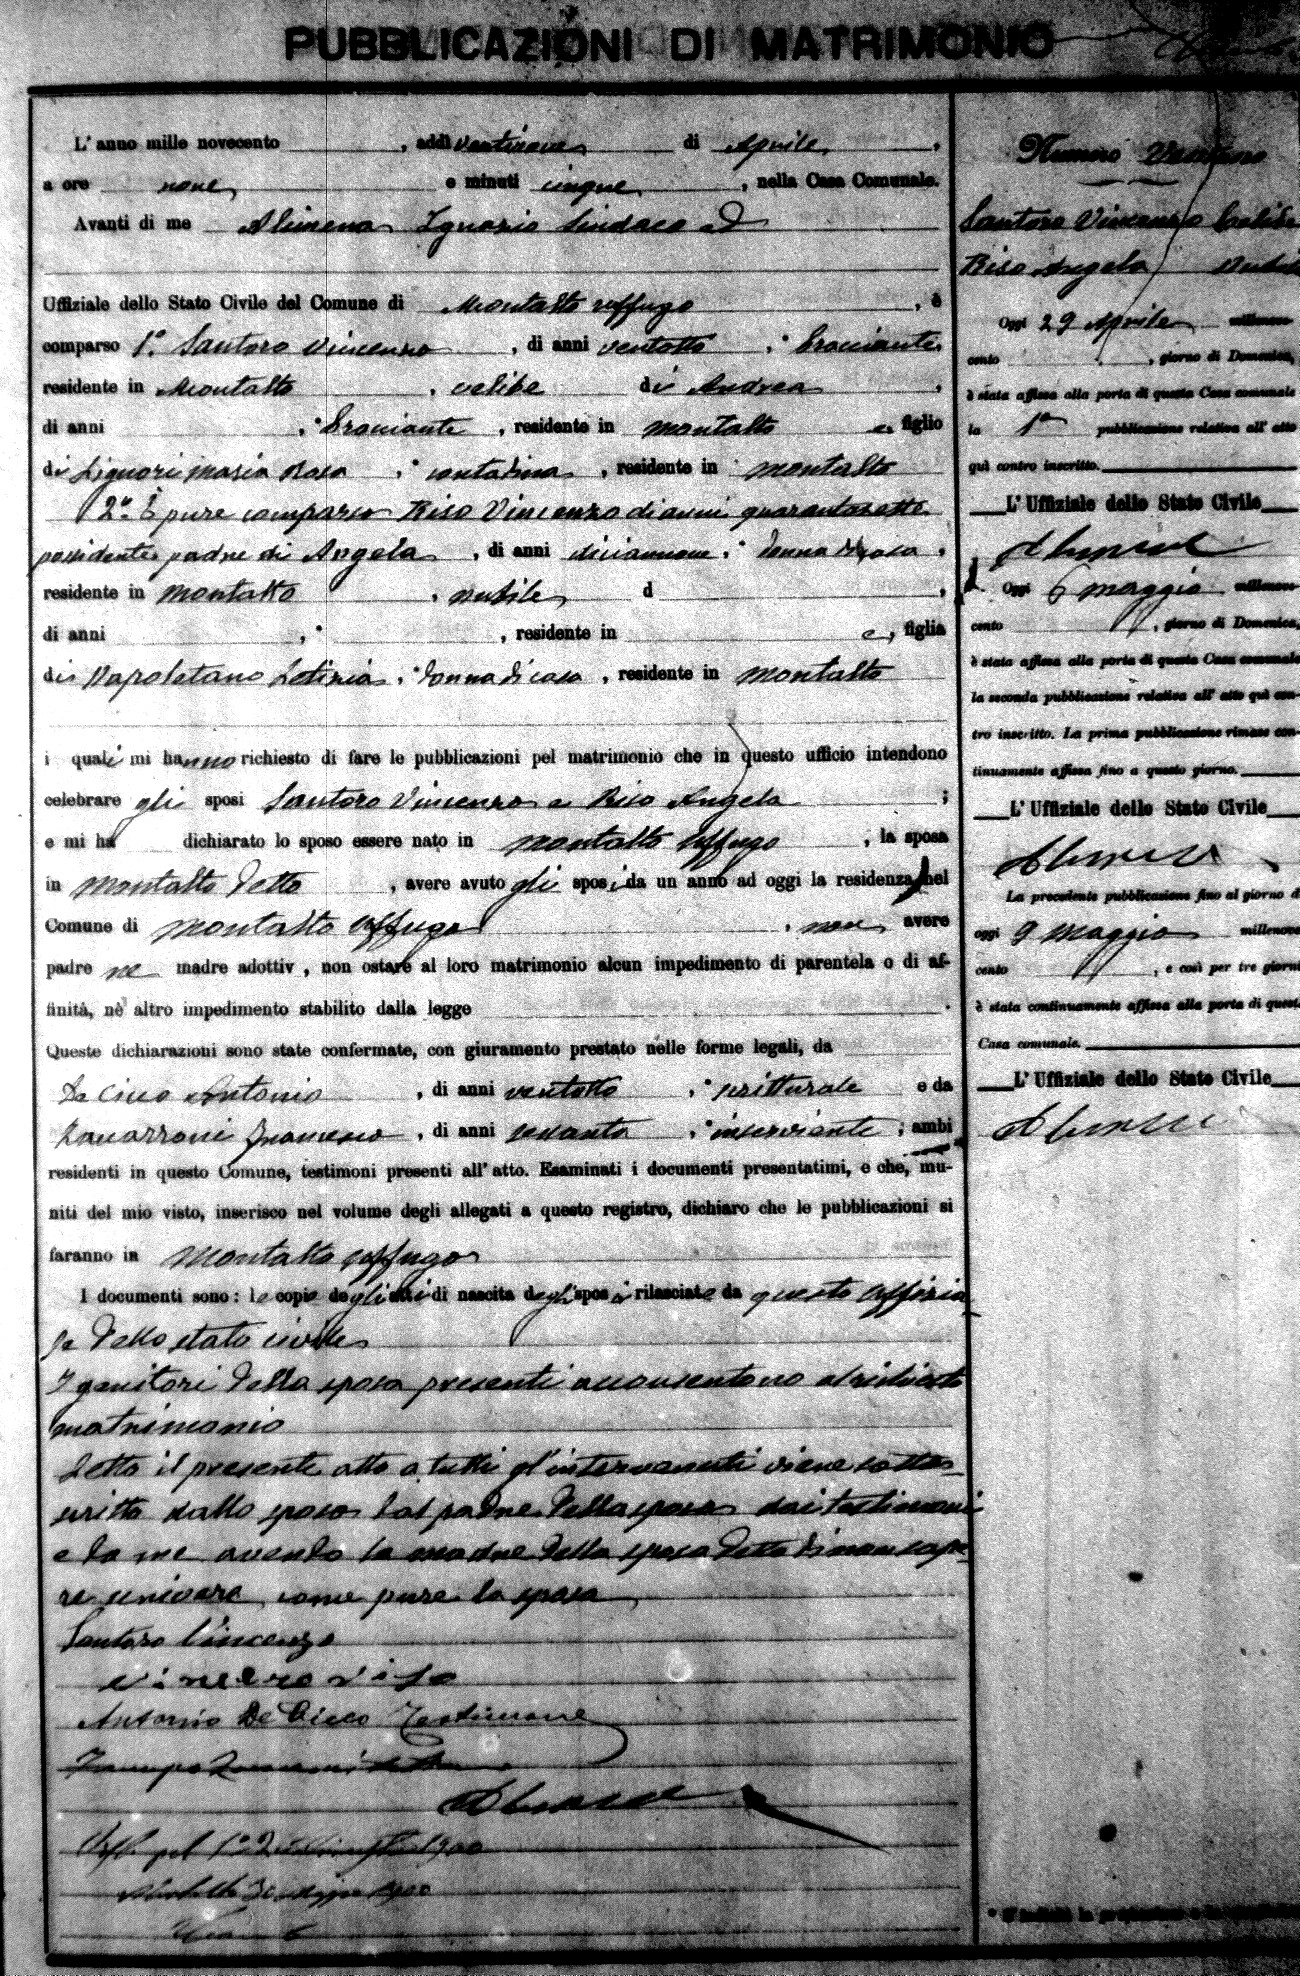 PUBBLICAZIONI DI MATRIMONIO
L'anno mille novecento, addì ventinove di Aprile,
a ore nove e minuti cinque, nella Casa Comunale.
Avanti di me Alimena Ignazio Sindaco
Uffiziale dello Stato Civile del Comune di Montalto Uffugo, è
comparso 1.° Santoro Vincenzo, di anni ventotto, bracciante,
residente in Montalto, celibe di Andrea,
di anni , bracciante, residente in Montalto e figlio
di Liguori Maria Rosa, contadina, residente in Montalto
2.° È pure comparso Riso Vincenzo di anni quarantasette
possidente, padre di Angela, di anni diciannove, donna di casa,
residente in Montalto, nubile d ,
di anni , , residente in e, figlia
di Napoletano Letizia, donna di casa, residente in Montalto
i quali mi hanno richiesto di fare le pubblicazioni pel matrimonio che in questo ufficio intendono
celebrare gli sposi Santoro Vincenzo e Riso Angela ;
e mi ha dichiarato lo sposo essere nato in Montalto Uffugo, la sposa
in Montalto detto, avere avuto gli sposi da un anno ad oggi la residenza nel
Comune di Montalto Uffugo, non avere
padre ne madre adottiv , non ostare al loro matrimonio alcun impedimento di parentela o di af-
finità, nè altro impedimento stabilito dalla legge .
Queste dichiarazioni sono state confermate, con giuramento prestato nelle forme legali, da
De Cicco Antonio, di anni ventotto, scritturale e da
Zavarroni Francesco, di anni sessanta, inserviente; ambi
residenti in questo Comune, testimoni presenti all'atto. Esaminati i documenti presentatimi, e che, mu-
niti del mio visto, inserisco nel volume degli allegati a questo registro, dichiaro che le pubblicazioni si
faranno in Montalto Uffugo
I documenti sono: le copie degli atti di nascita degli sposi rilasciate da questo Uffizia
le dello stato civile
I genitori della sposa presenti acconsentono al richiesto
matrimonio
Letto il presente atto a tutti gl'intervenuti viene sotto-
scritto dallo sposo dal padre della sposa dai testimoni
e da me avendo la madre della sposa detto di non sape-
re scrivere come pure la sposa
Santoro Vincenzo
vincenzo riso
Antonio De Cicco Testimone
Alimena
1900
1900
Numero
Santoro Vincenzo Celibe
Riso Angela Nubile
Oggi 29 Aprile millenove-
cento , giorno di Domenica,
è stata affissa alla porta di questa Casa comunale
la 1a pubblicazione relativa all'atto
quì contro inscritto.
L'Uffiziale dello Stato Civile
Alimena
Oggi 6 maggio millenove-
cento , giorno di Domenica,
è stata affissa alla porta di questa Casa comunale
la seconda pubblicazione relativa all'atto quì con-
tro inscritto. La prima pubblicazione rimase con-
tinuamente affissa fino a questo giorno.
L'Uffiziale dello Stato Civile
Alimena
La precedente pubblicazione fino al giorno d
oggi 9 maggio millenove
cento , e così per tre giorni
è stata continuamente affissa alla porta di questa
Casa comunale.
L'Uffiziale dello Stato Civile
Alimena